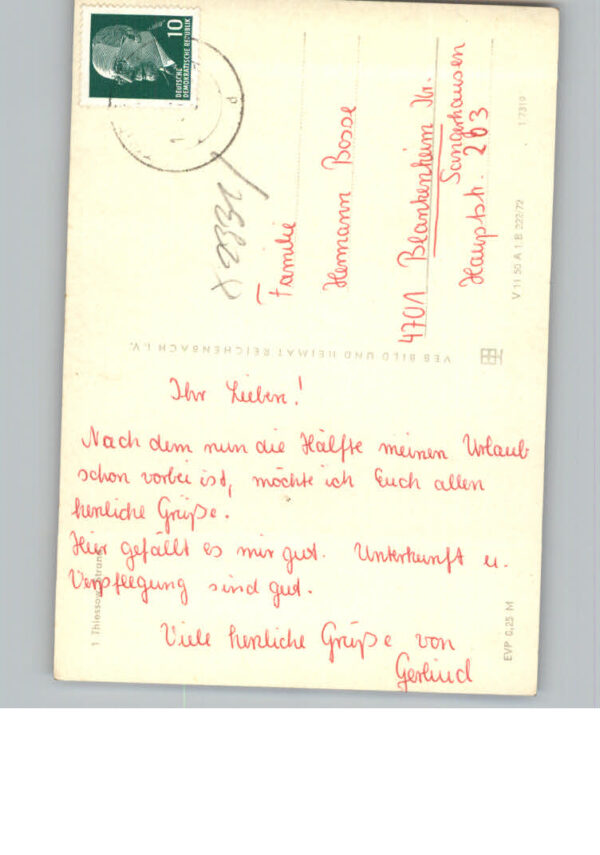 10
DEUTSCHE
DEMOKRATISCHE REPUBLIK
d
Familie
Hermann Bosse
4701 Blankenheim Kr.
Sangerhausen
Hauptstr. 203
VEB BILD UND HEIMAT REICHENBACH I. V.
V 11 50 A 1 B 222/72
1 7319
Ihr Lieben!
Nach dem nun die Hälfte meinen Urlaub
schon vorbei ist, möchte ich Euch allen
herzliche Grüße.
Hier gefällt es mir gut. Unterkunft u.
Verpflegung sind gut.
Viele herzliche Grüße von
Gerlind
1 Thiessow
EVP 0,25 M